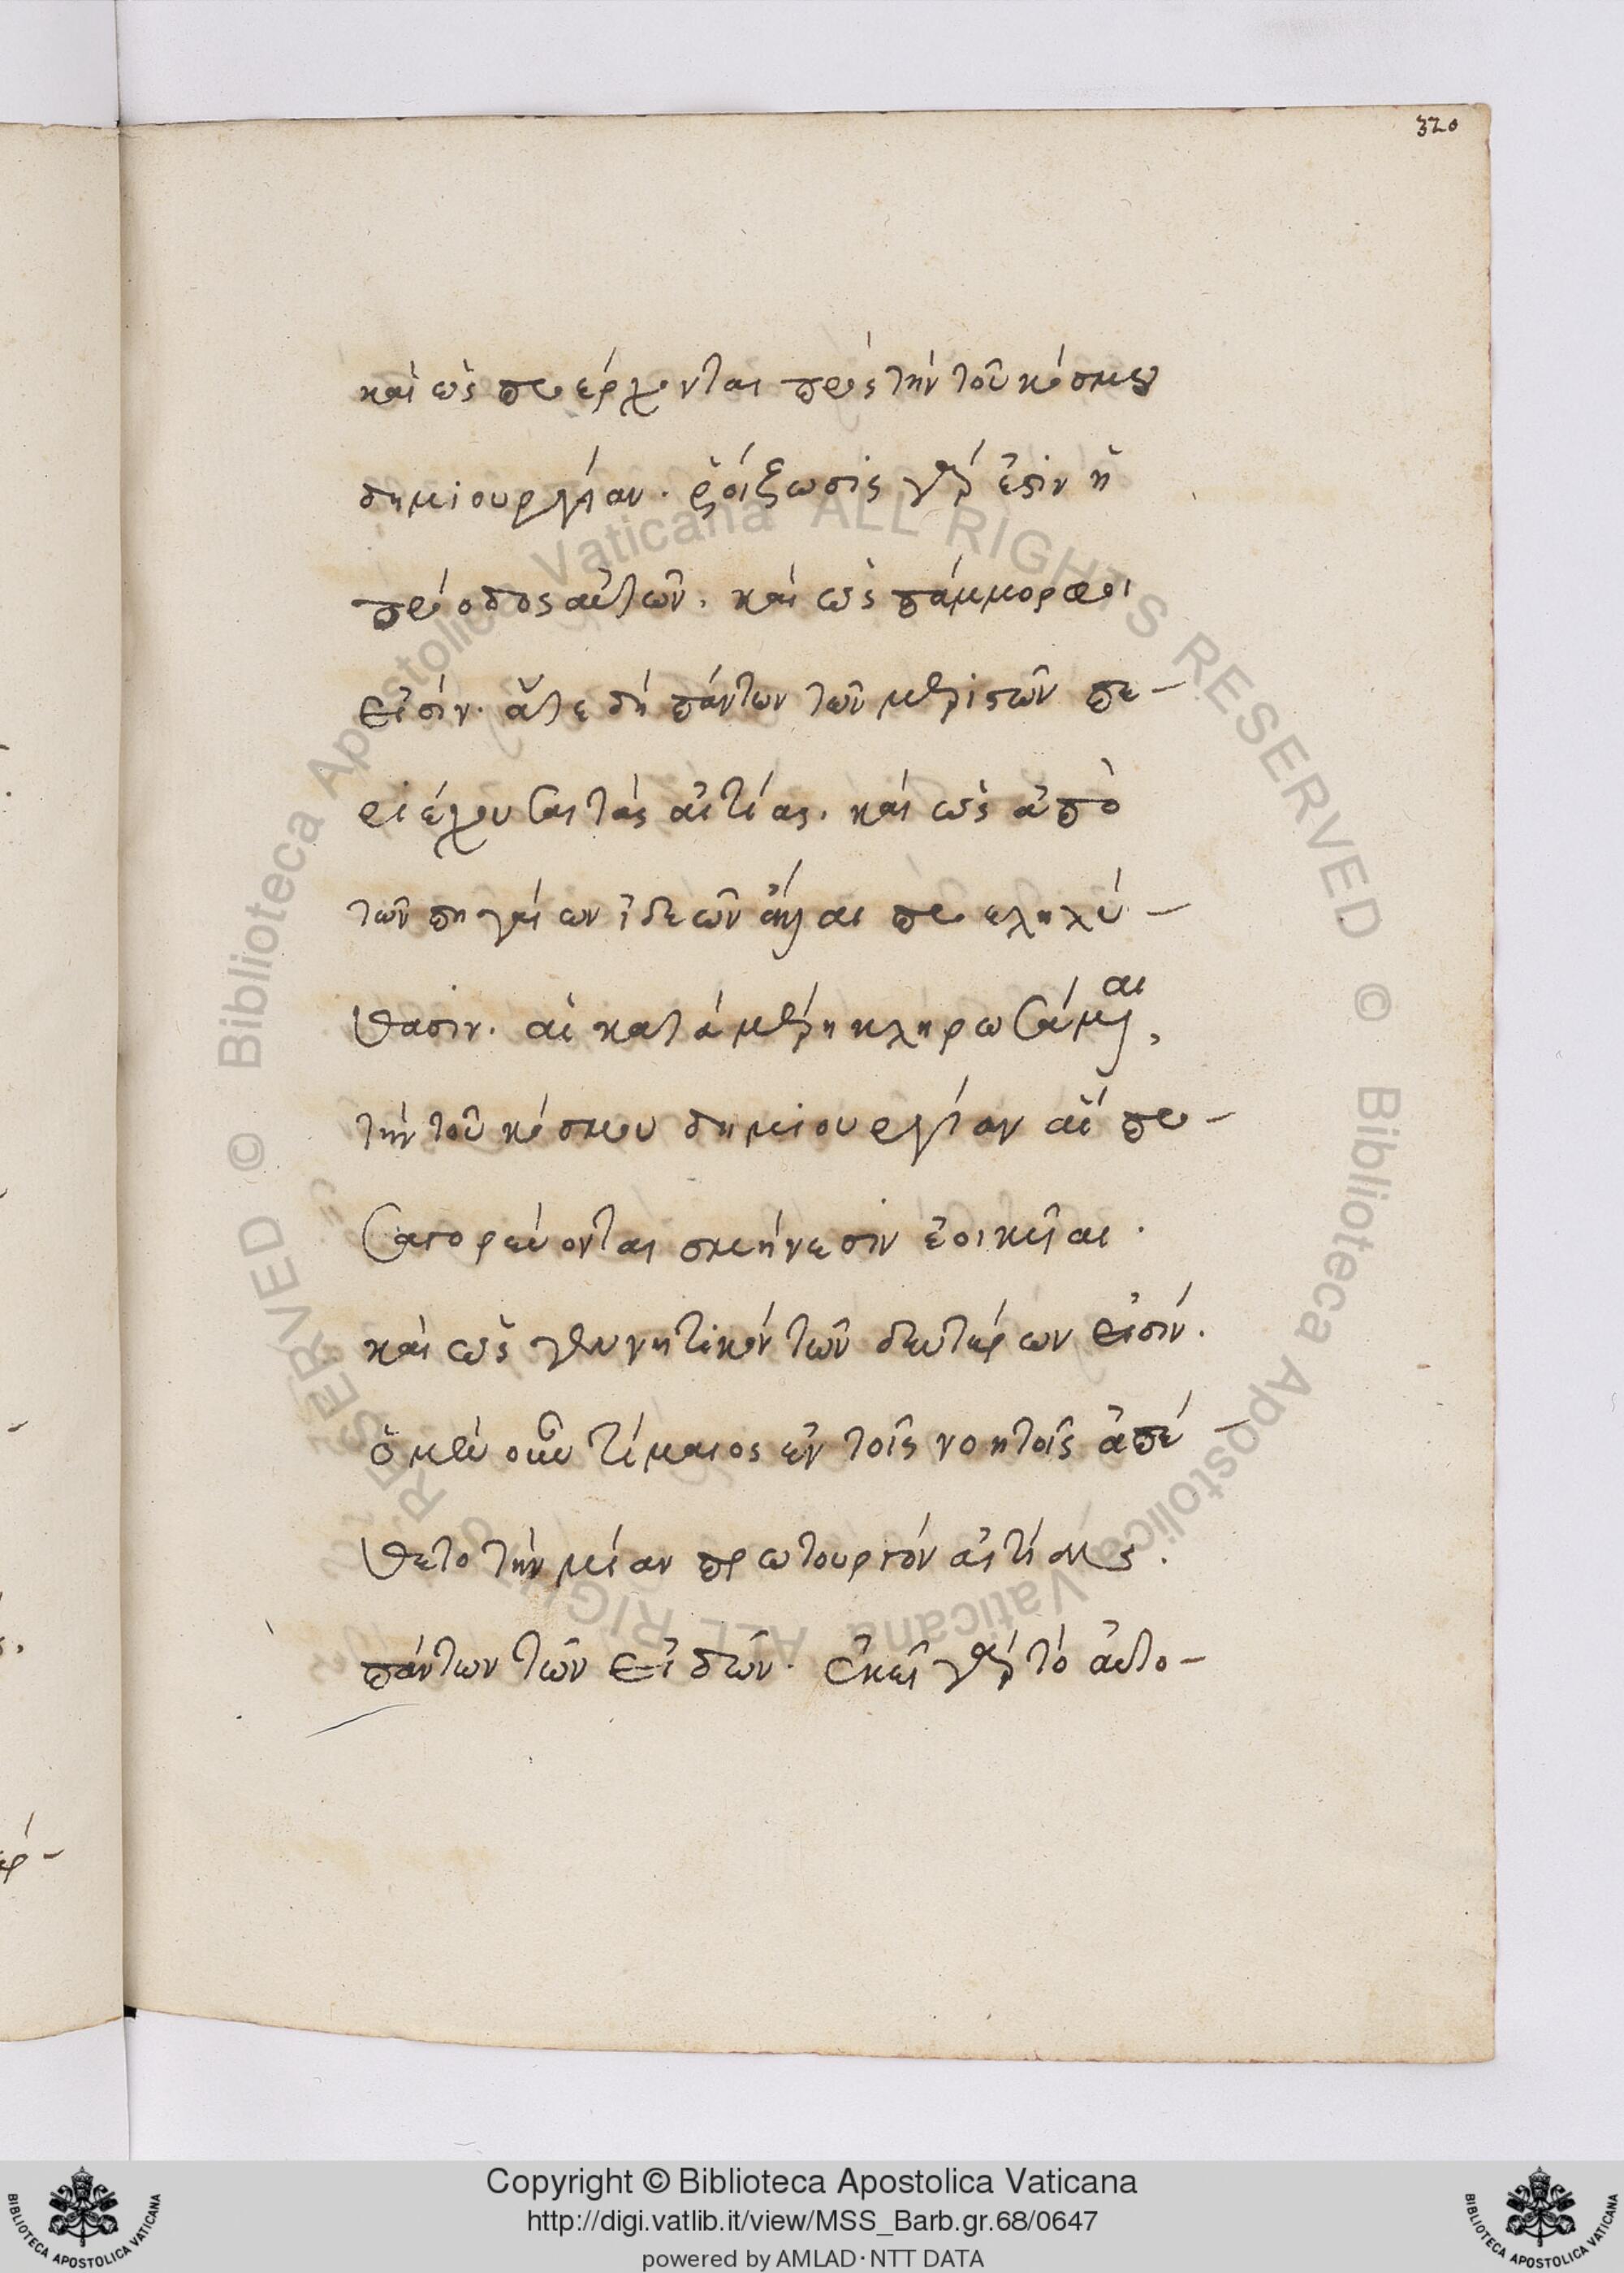 320
καὶ ὡς προέρχονται πρὸς τὴν τοῦ κόσμου
δημιουργίαν. ῥοίζωσις γάρ ἐστιν ἡ
πρόοδος αὐτῶν. καὶ ὡς πάμμορφοι
εἰσίν. ἅτε δὴ πάντων τῶν μεριστῶν πε-
ριέχουσαι τὰς αἰτίας. καὶ ὡς ἀπὸ
τῶν πηγαίων ἰδεῶν ἄλλαι προεληλύ-
θασιν. αἱ κατὰ μέρη κληρωσάμεναι,
τὴν τοῦ κόσμου δημιουργίαν αἳ προ-
σαγορεύονται σμήνεσιν ἐοικεῖαι.
καὶ ὡς γεννητικὸν τῶν δευτέρων εἰσίν.
ὁ μὲν οὖν τίμαιος ἐν τοῖς νοητοῖς ἀπέ-
θετο τὴν μίαν πρωτουργὸν αἰτίαν.
πάντων τῶν εἰδῶν. ἐκεῖ γὰρ τὸ αὐτο-
Copyright © Biblioteca Apostolica Vaticana
http://digi.vatlib.it/view/MSS_Barb.gr.68/0647
powered by AMLAD·NTT DATA
BIBLIOTECA APOSTOLICA VATICANA
BIBLIOTECA APOSTOLICA VATICANA
© Biblioteca Apostolica Vaticana ALL RIGHTS RESERVED © Biblioteca Apostolica Vaticana ALL RIGHTS RESERVED